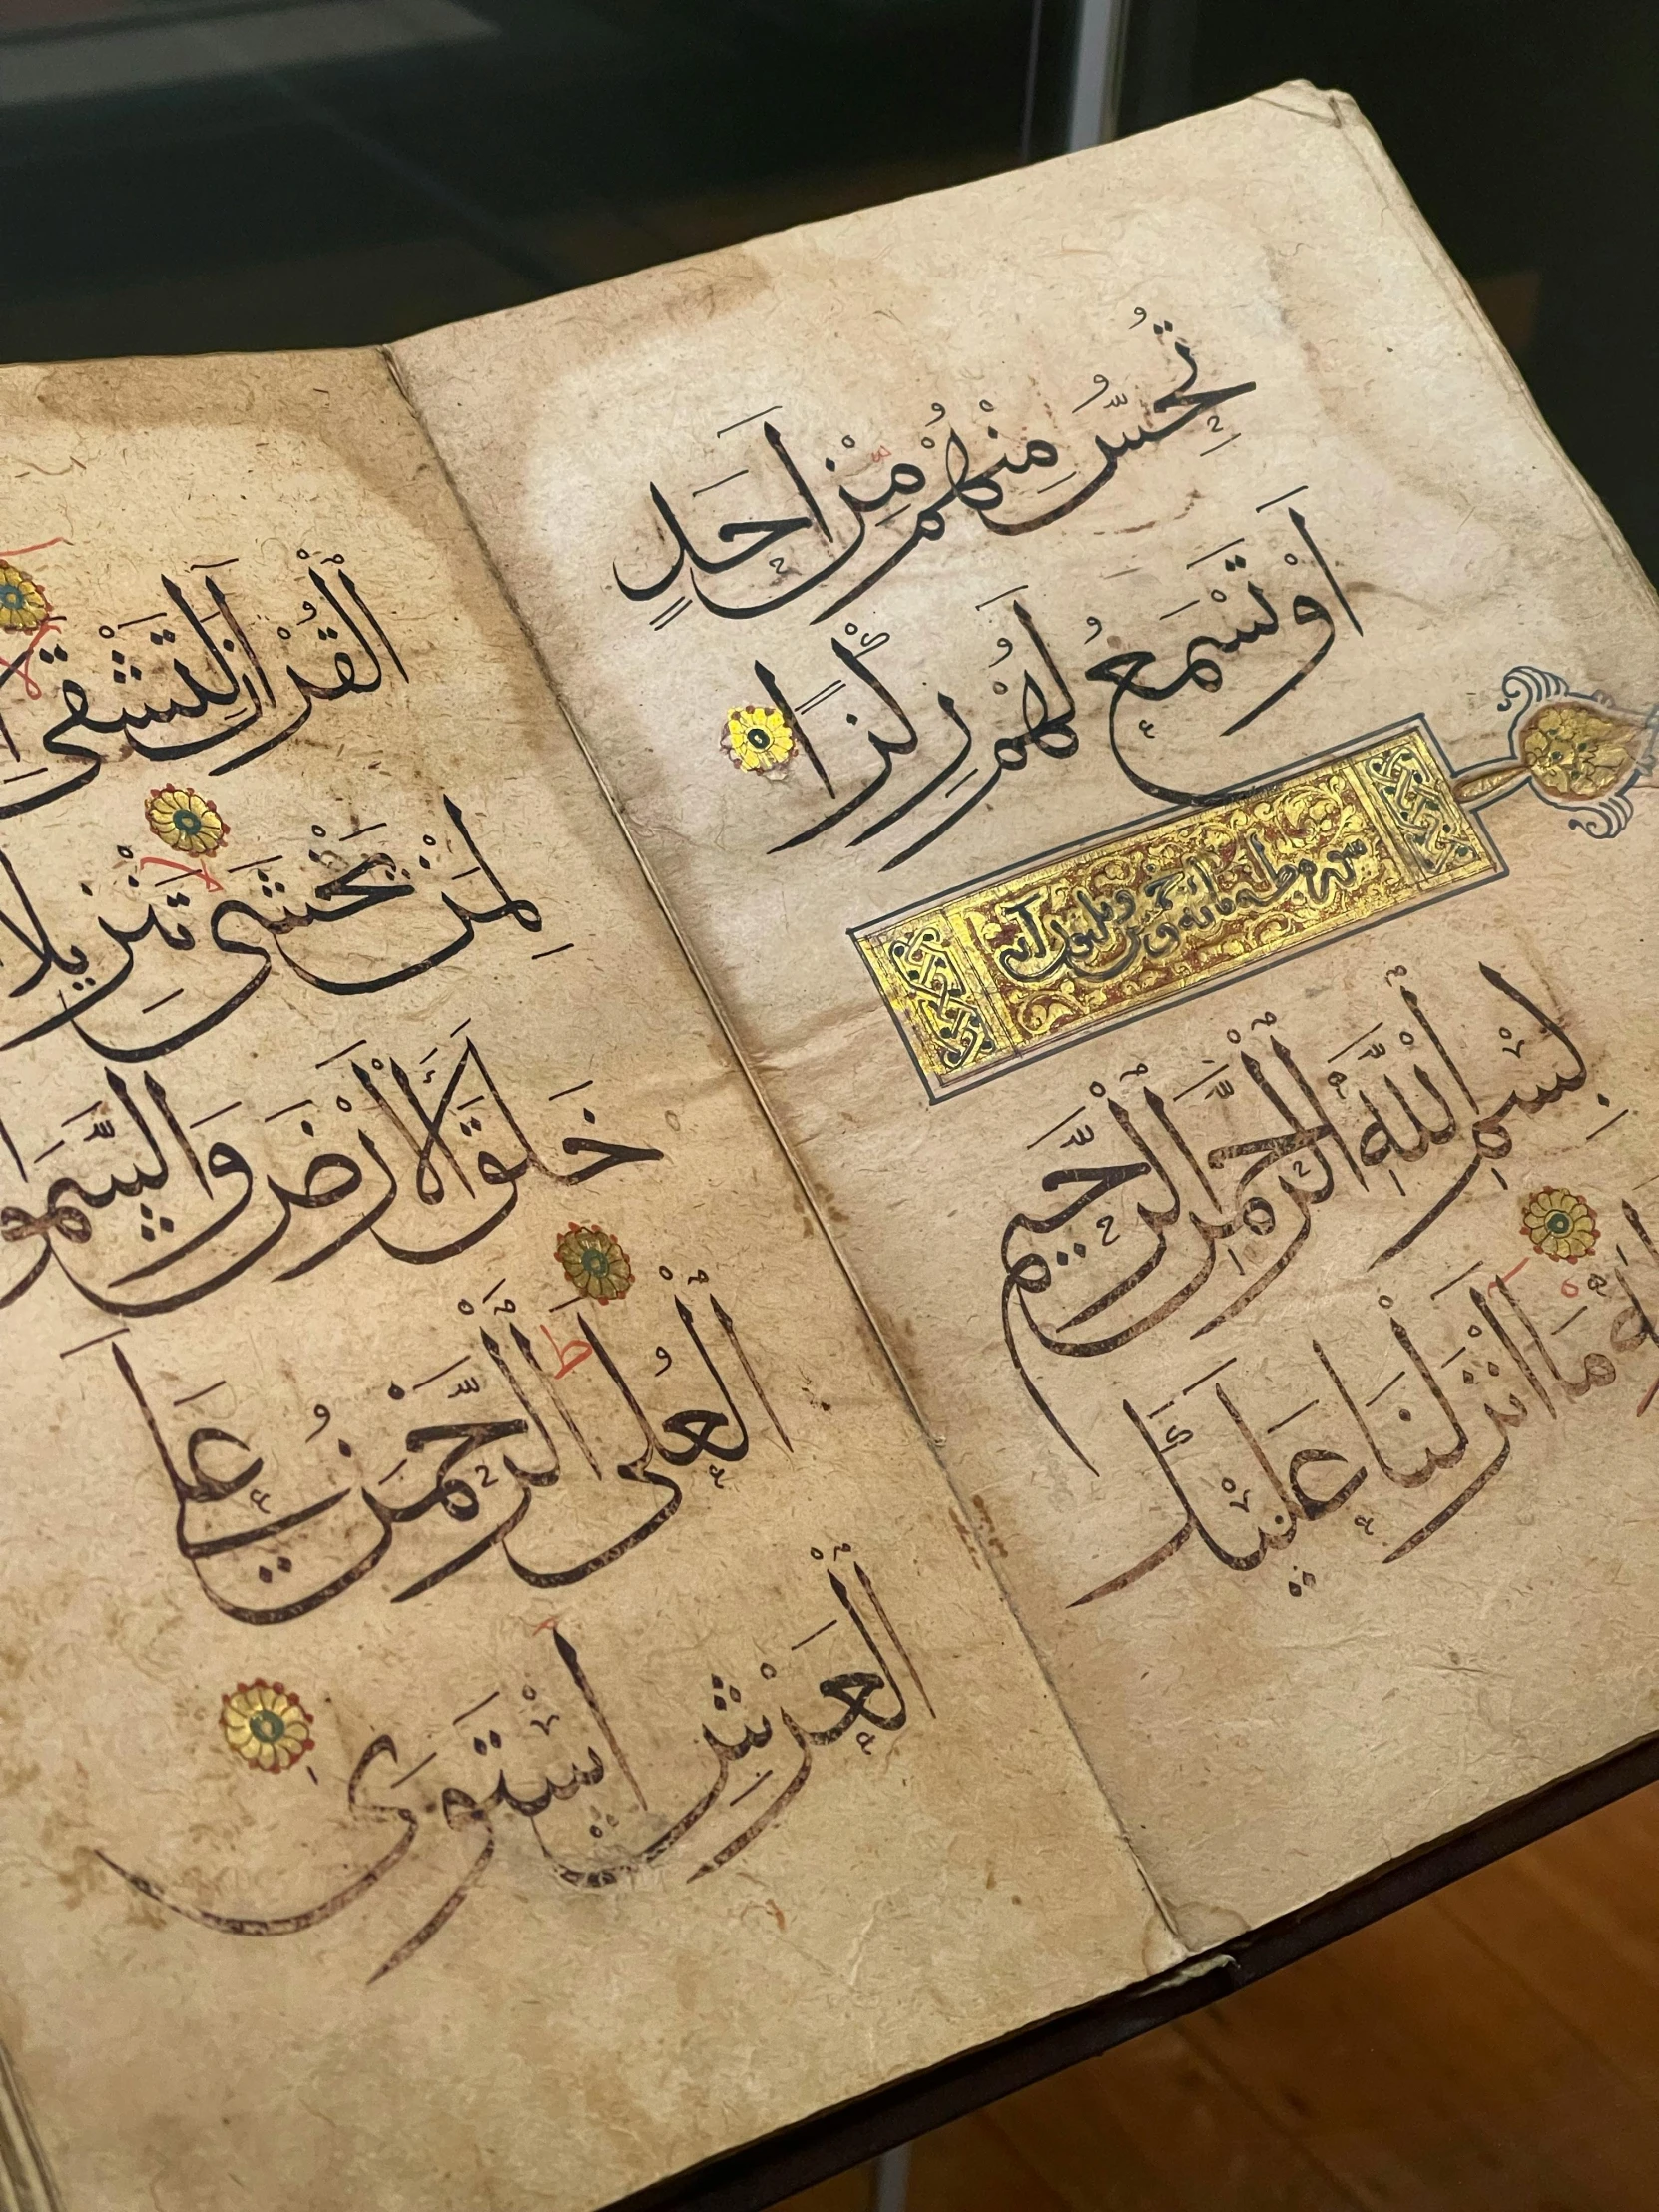 تُحِسُّ مِنْهُمْ مِنْ اَحَدٍ
اَوْ تَسْمَعُ لَهُمْ رِكْزًا
سورة طه
بِسْمِ اللّٰهِ الرَّحْمٰنِ الرَّحِيمِ
مَا اَنْزَلْنَا عَلَيْكَ
الْقُرْاٰنَ لِتَشْقَى
لِمَنْ يَخْشَى تَنْزِيلًا
خَلَقَ الْاَرْضَ وَالسَّمو
الْعُلَى الرَّحْمَنُ عَلَى
الْعَرْشِ اسْتَوَى